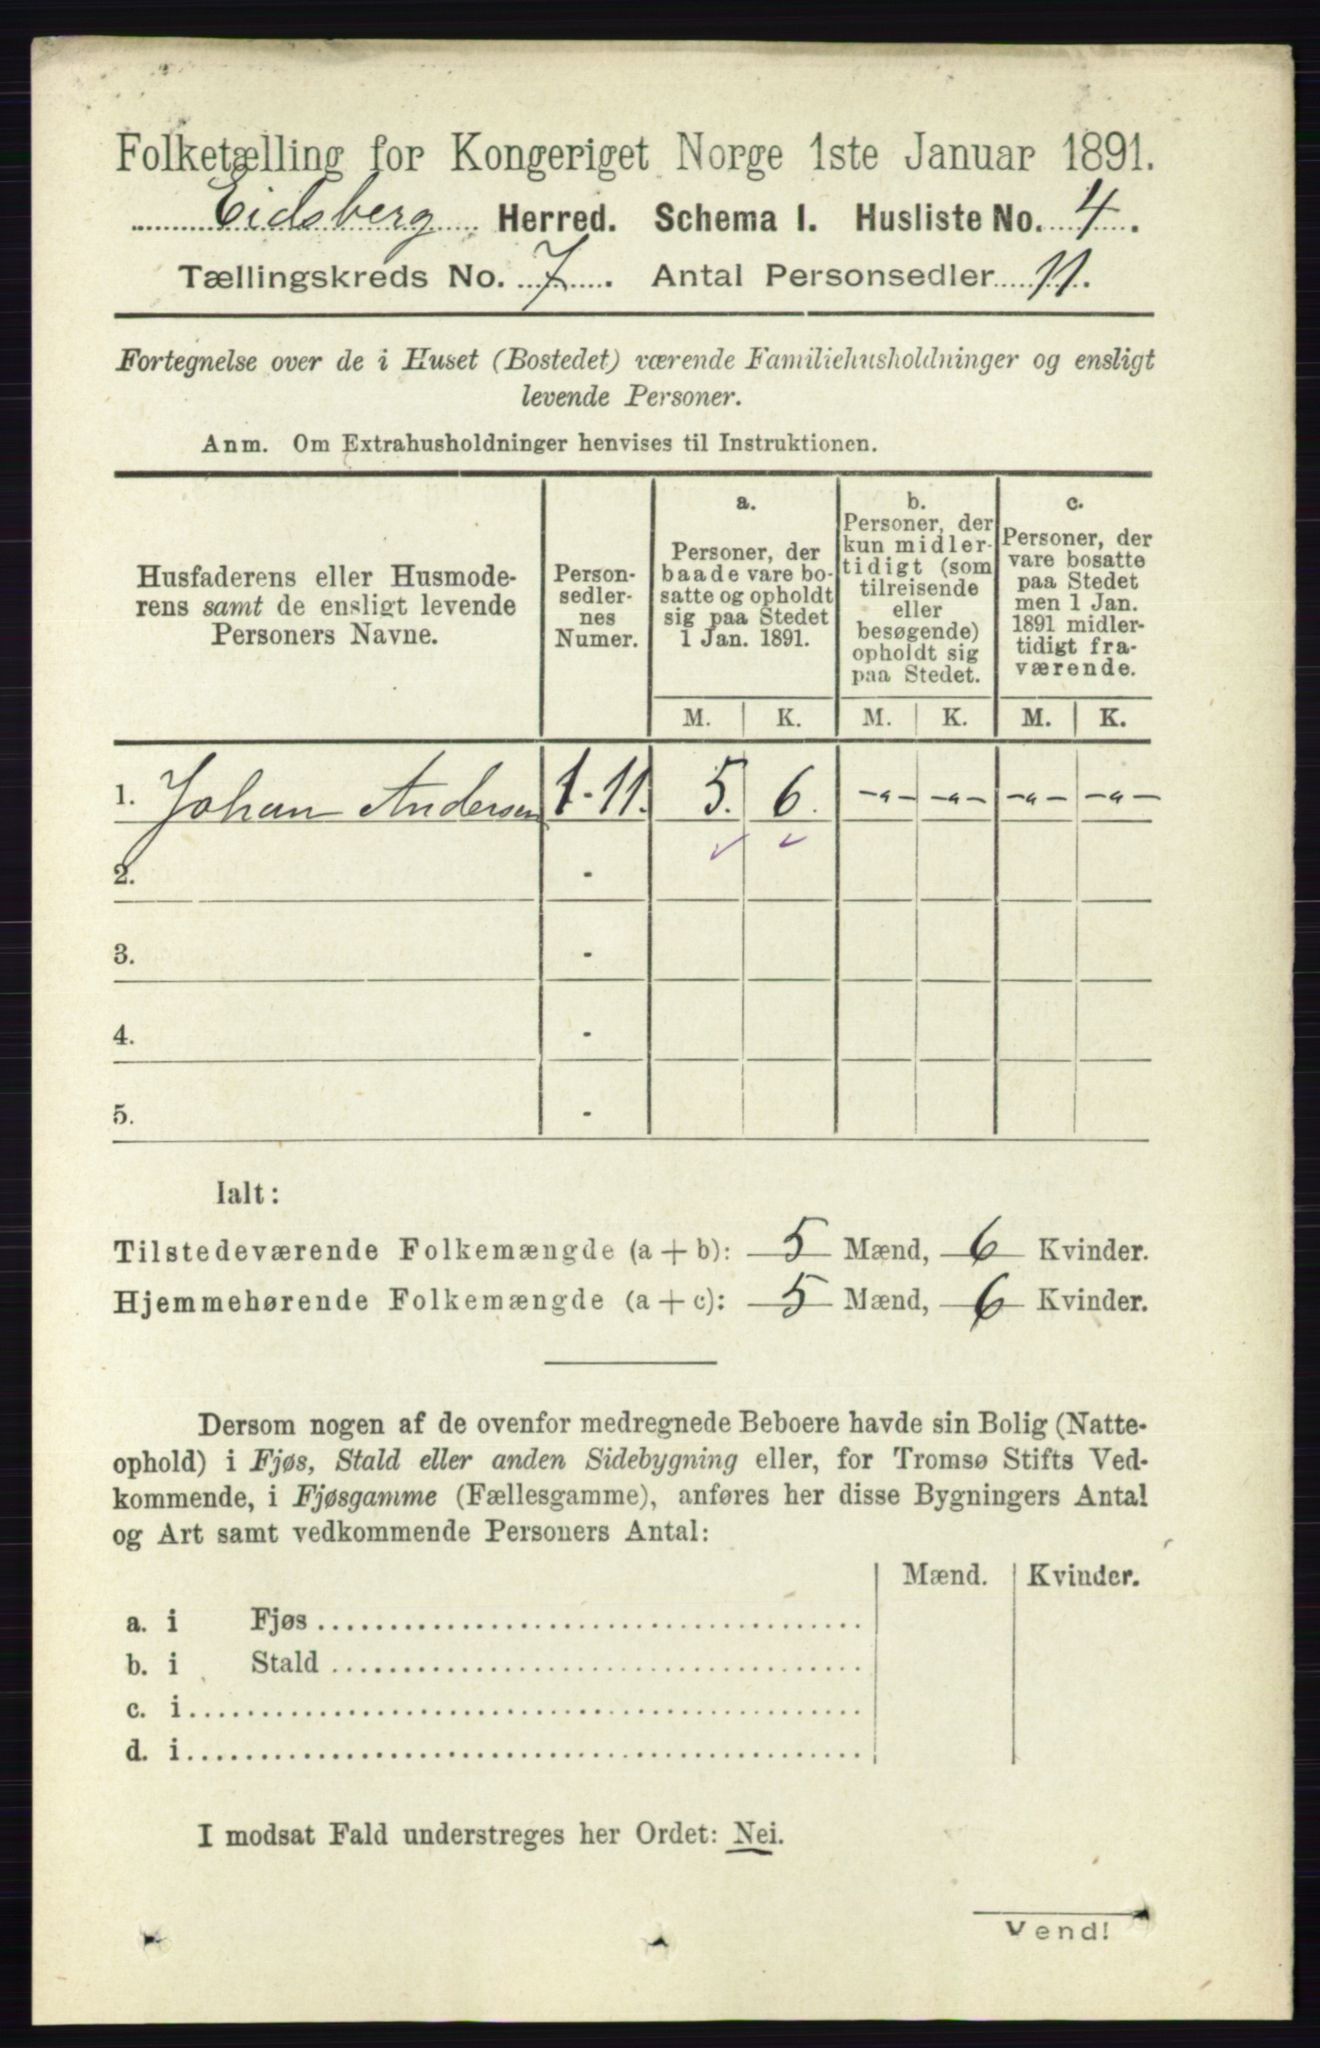 Folketælling for Kongeriget Norge 1ste Januar 1891.
Eidsberg Herred. Schema I. Husliste No. 4.
Tællingskreds No. 7. Antal Personsedler 11.
Fortegnelse over de i Huset (Bostedet) værende Familiehusholdninger og ensligt
levende Personer.
Anm. Om Extrahusholdninger henvises til Instruktionen.
Husfaderens eller Husmode-
rens samt de ensligt levende
Personers Navne.
Person-
sedler-
nes
Numer.
a.
Personer, der
baade vare bo-
satte og opholdt
sig paa Stedet
1 Jan. 1891.
b.
Personer, der
kun midler-
tidigt (som
tilreisende
eller
besøgende)
opholdt sig
paa Stedet.
c.
Personer, der
vare bosatte
paa Stedet
men 1 Jan.
1891 midler-
tidigt fra-
værende.
M. K. M. K. M. K.
1. Johan Andersen 1-11. 5. 6. -"- -"- -"- -"-
2. -
3. -
4. -
5. -
Ialt:
Tilstedeværende Folkemængde (a + b): 5 Mænd, 6 Kvinder.
Hjemmehørende Folkemængde (a + c): 5 Mænd, 6 Kvinder.
Dersom nogen af de ovenfor medregnede Beboere havde sin Bolig (Natte-
ophold) i Fjøs, Stald eller anden Sidebygning eller, for Tromsø Stifts Ved-
kommende, i Fjøsgamme (Fællesgamme), anføres her disse Bygningers Antal
og Art samt vedkommende Personers Antal:
Mænd. Kvinder.
a. i Fjøs
b. i Stald
c. i
d. i
I modsat Fald understreges her Ordet: Nei.
Vend!